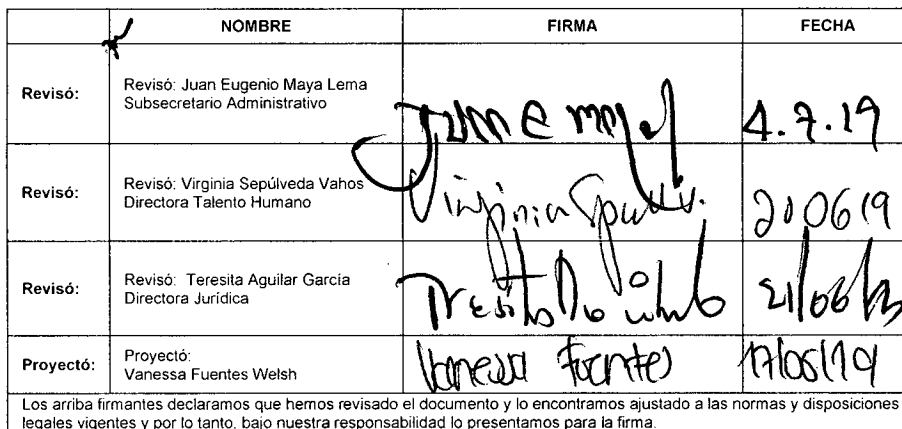 NOMBRE FIRMA FECHA
Revisó: Revisó: Juan Eugenio Maya Lema
Subsecretario Administrativo
Juan e maya 4.7.19
Revisó: Revisó: Virginia Sepúlveda Vahos
Directora Talento Humano
Virginia
Revisó: Revisó: Teresita Aguilar García
Directora Jurídica
Proyectó: Proyectó:
Vanessa Fuentes Welsh
Vanessa Fuentes
Los arriba firmantes declaramos que hemos revisado el documento y lo encontramos ajustado a las normas y disposiciones
legales vigentes y por lo tanto, bajo nuestra responsabilidad lo presentamos para la firma.